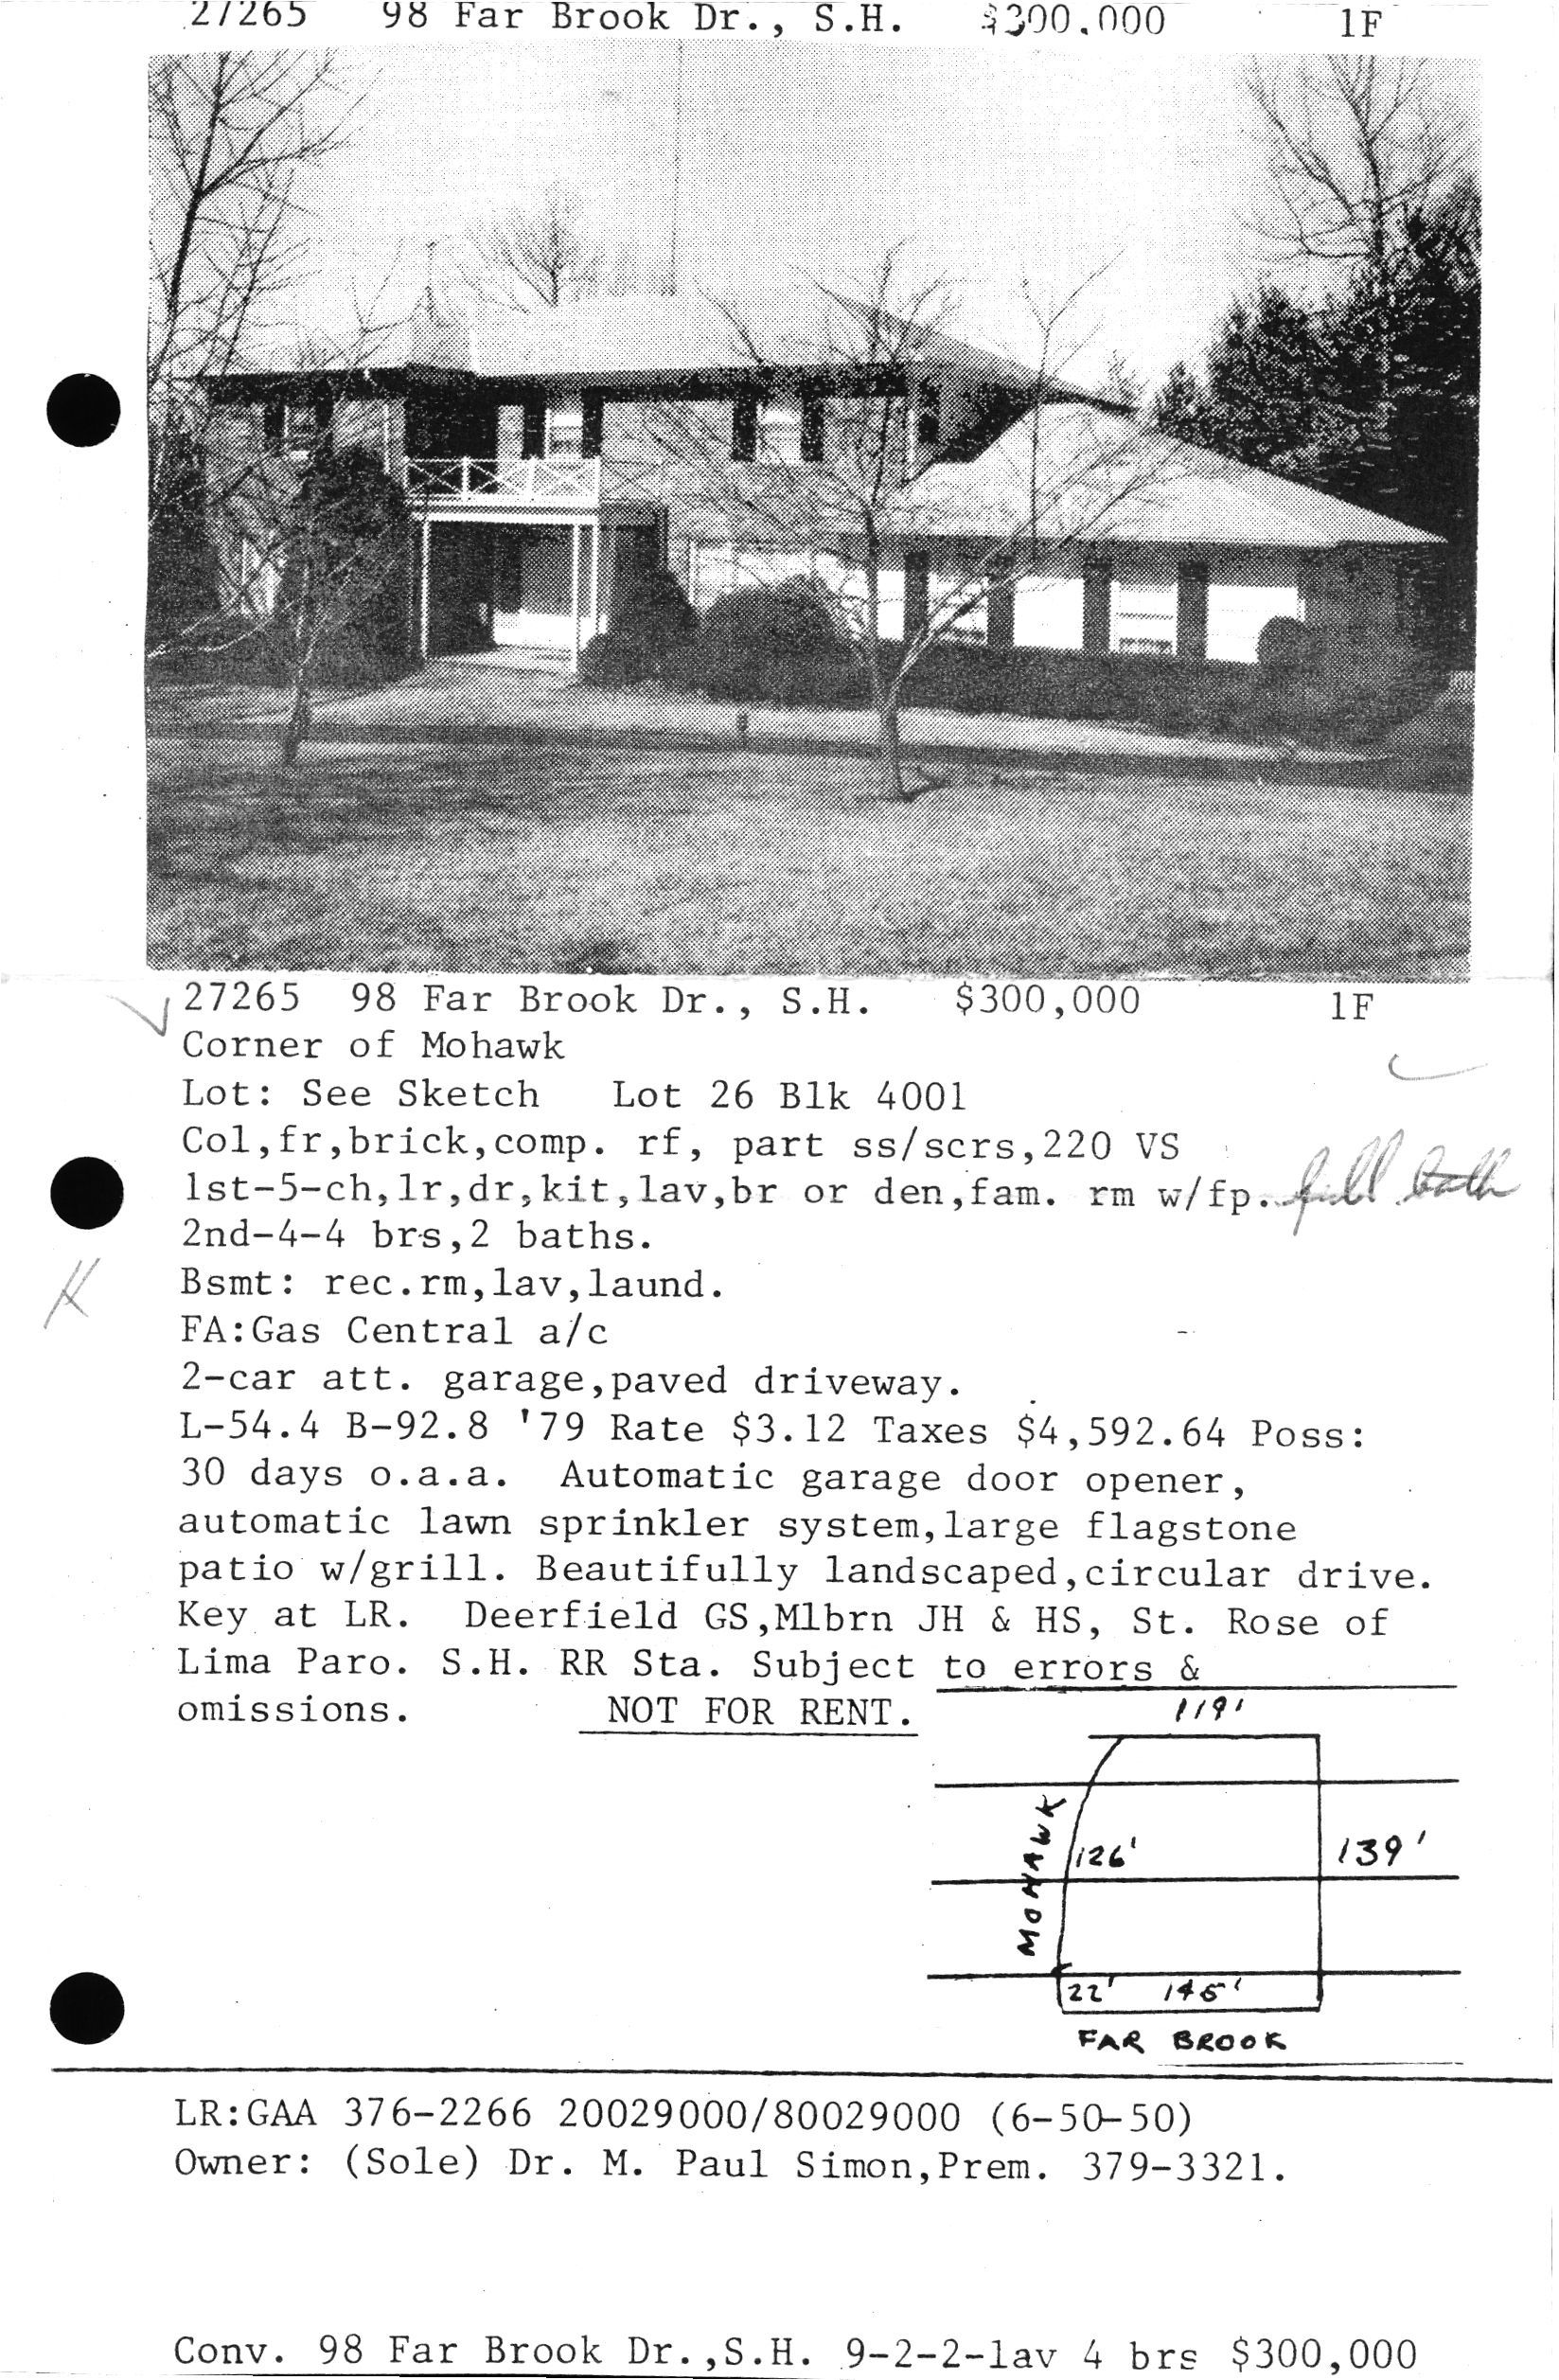 27265 98 Far Brook Dr., S.H. $300,000 1F
27265 98 Far Brook Dr., S.H. $300,000 1F
Corner of Mohawk
Lot: See Sketch Lot 26 Blk 4001
Col,fr,brick,comp. rf, part ss/scrs,220 VS
1st-5-ch,lr,dr,kit,lav,br or den,fam. rm w/fp. full bath
2nd-4-4 brs,2 baths.
Bsmt: rec.rm,lav,laund.
FA:Gas Central a/c
2-car att. garage,paved driveway.
L-54.4 B-92.8 '79 Rate $3.12 Taxes $4,592.64 Poss:
30 days o.a.a. Automatic garage door opener,
automatic lawn sprinkler system,large flagstone
patio w/grill. Beautifully landscaped,circular drive.
Key at LR. Deerfield GS,Mlbrn JH & HS, St. Rose of
Lima Paro. S.H. RR Sta. Subject to errors &
omissions. NOT FOR RENT.
119'
MOHAWK
126'
139'
22' 145'
FAR BROOK
LR:GAA 376-2266 20029000/80029000 (6-50-50)
Owner: (Sole) Dr. M. Paul Simon,Prem. 379-3321.
Conv. 98 Far Brook Dr.,S.H. 9-2-2-lav 4 brs $300,000